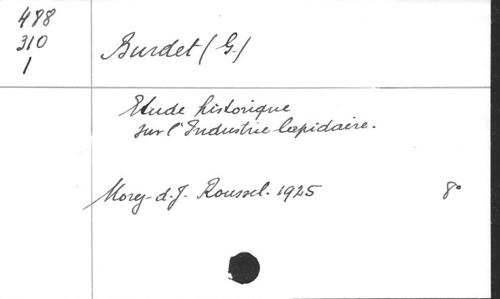 488
310
1
Burdet (G.)
Etude historique
sur l'Industrie lapidaire.
Morez-d.J. Roussel. 1925 8°